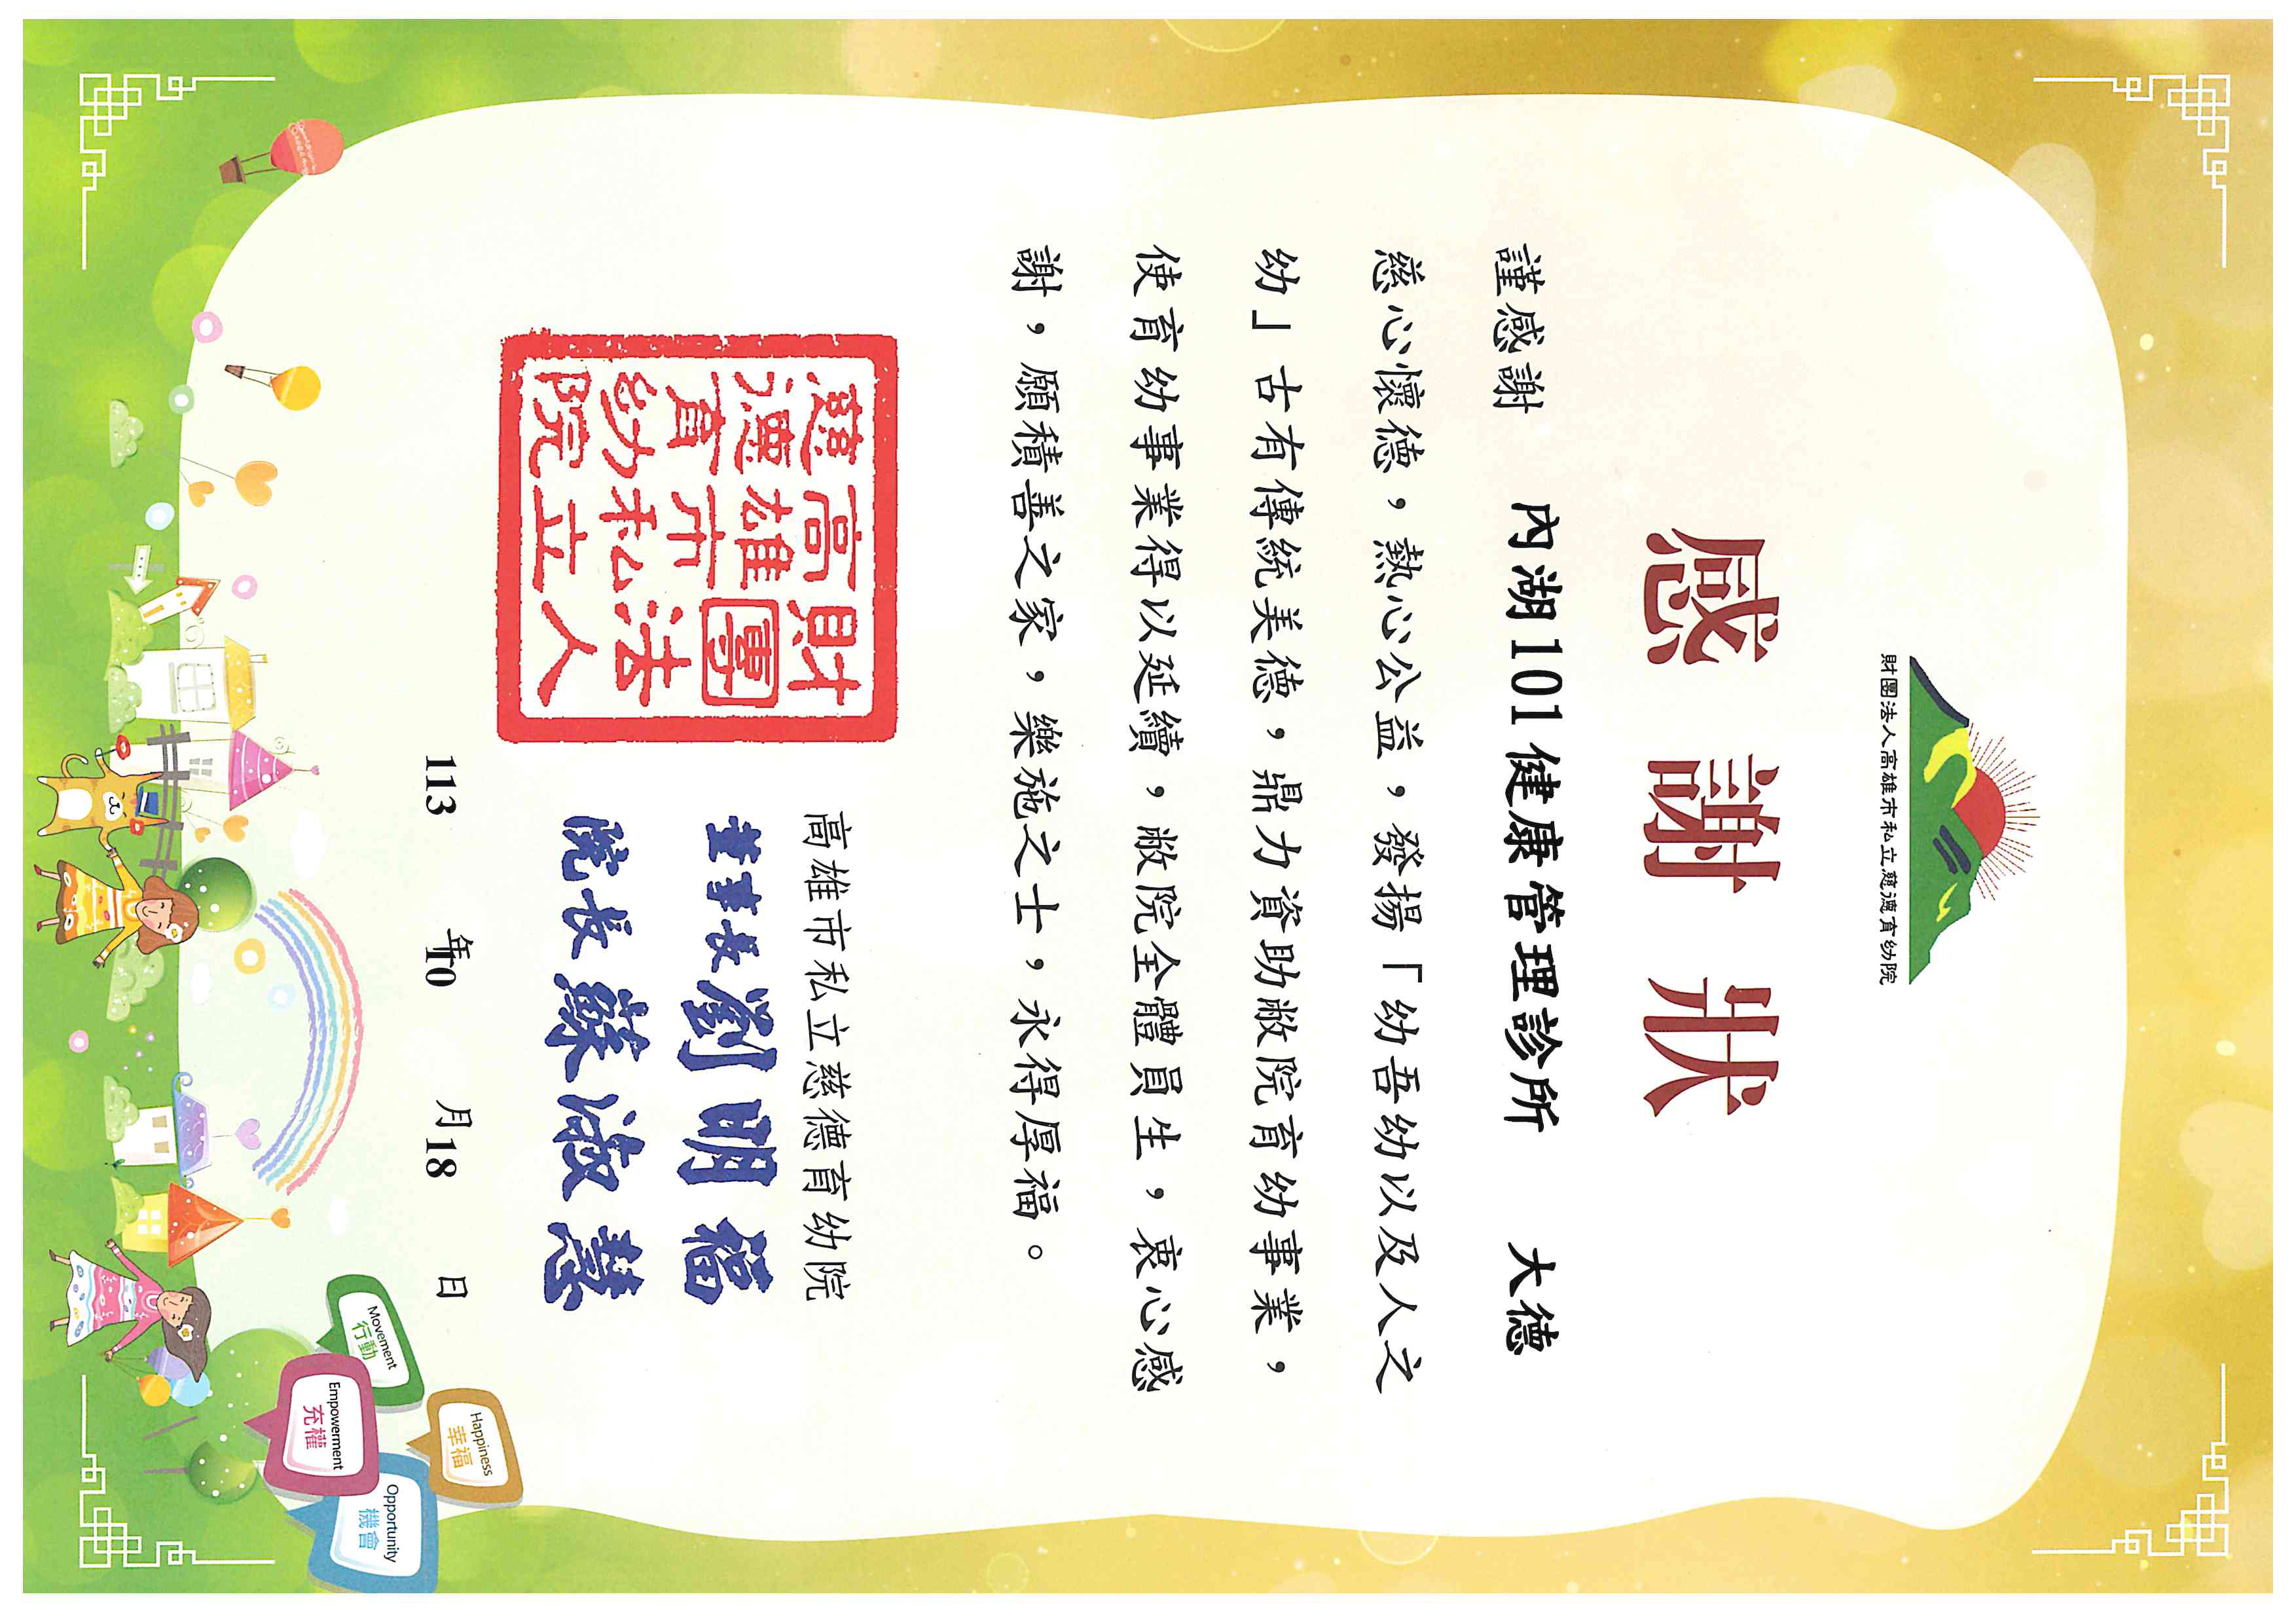 財團法人高雄市私立慈德育幼院
感謝狀
謹感謝 內湖101健康管理診所 大德
慈心懷德，熱心公益，發揚「幼吾幼以及人之
幼」古有傳統美德，鼎力資助敝院育幼事業，
使育幼事業得以延續，敝院全體員生，衷心感
謝，願積善之家，樂施之士，永得厚福。
財團法人
高雄市私立
慈德育幼院
高雄市私立慈德育幼院
董事長 劉明福
院長 蘇淑慧
113 年10 月18 日
Movement
行動
Empowerment
充權
Happiness
幸福
Opportunity
機會